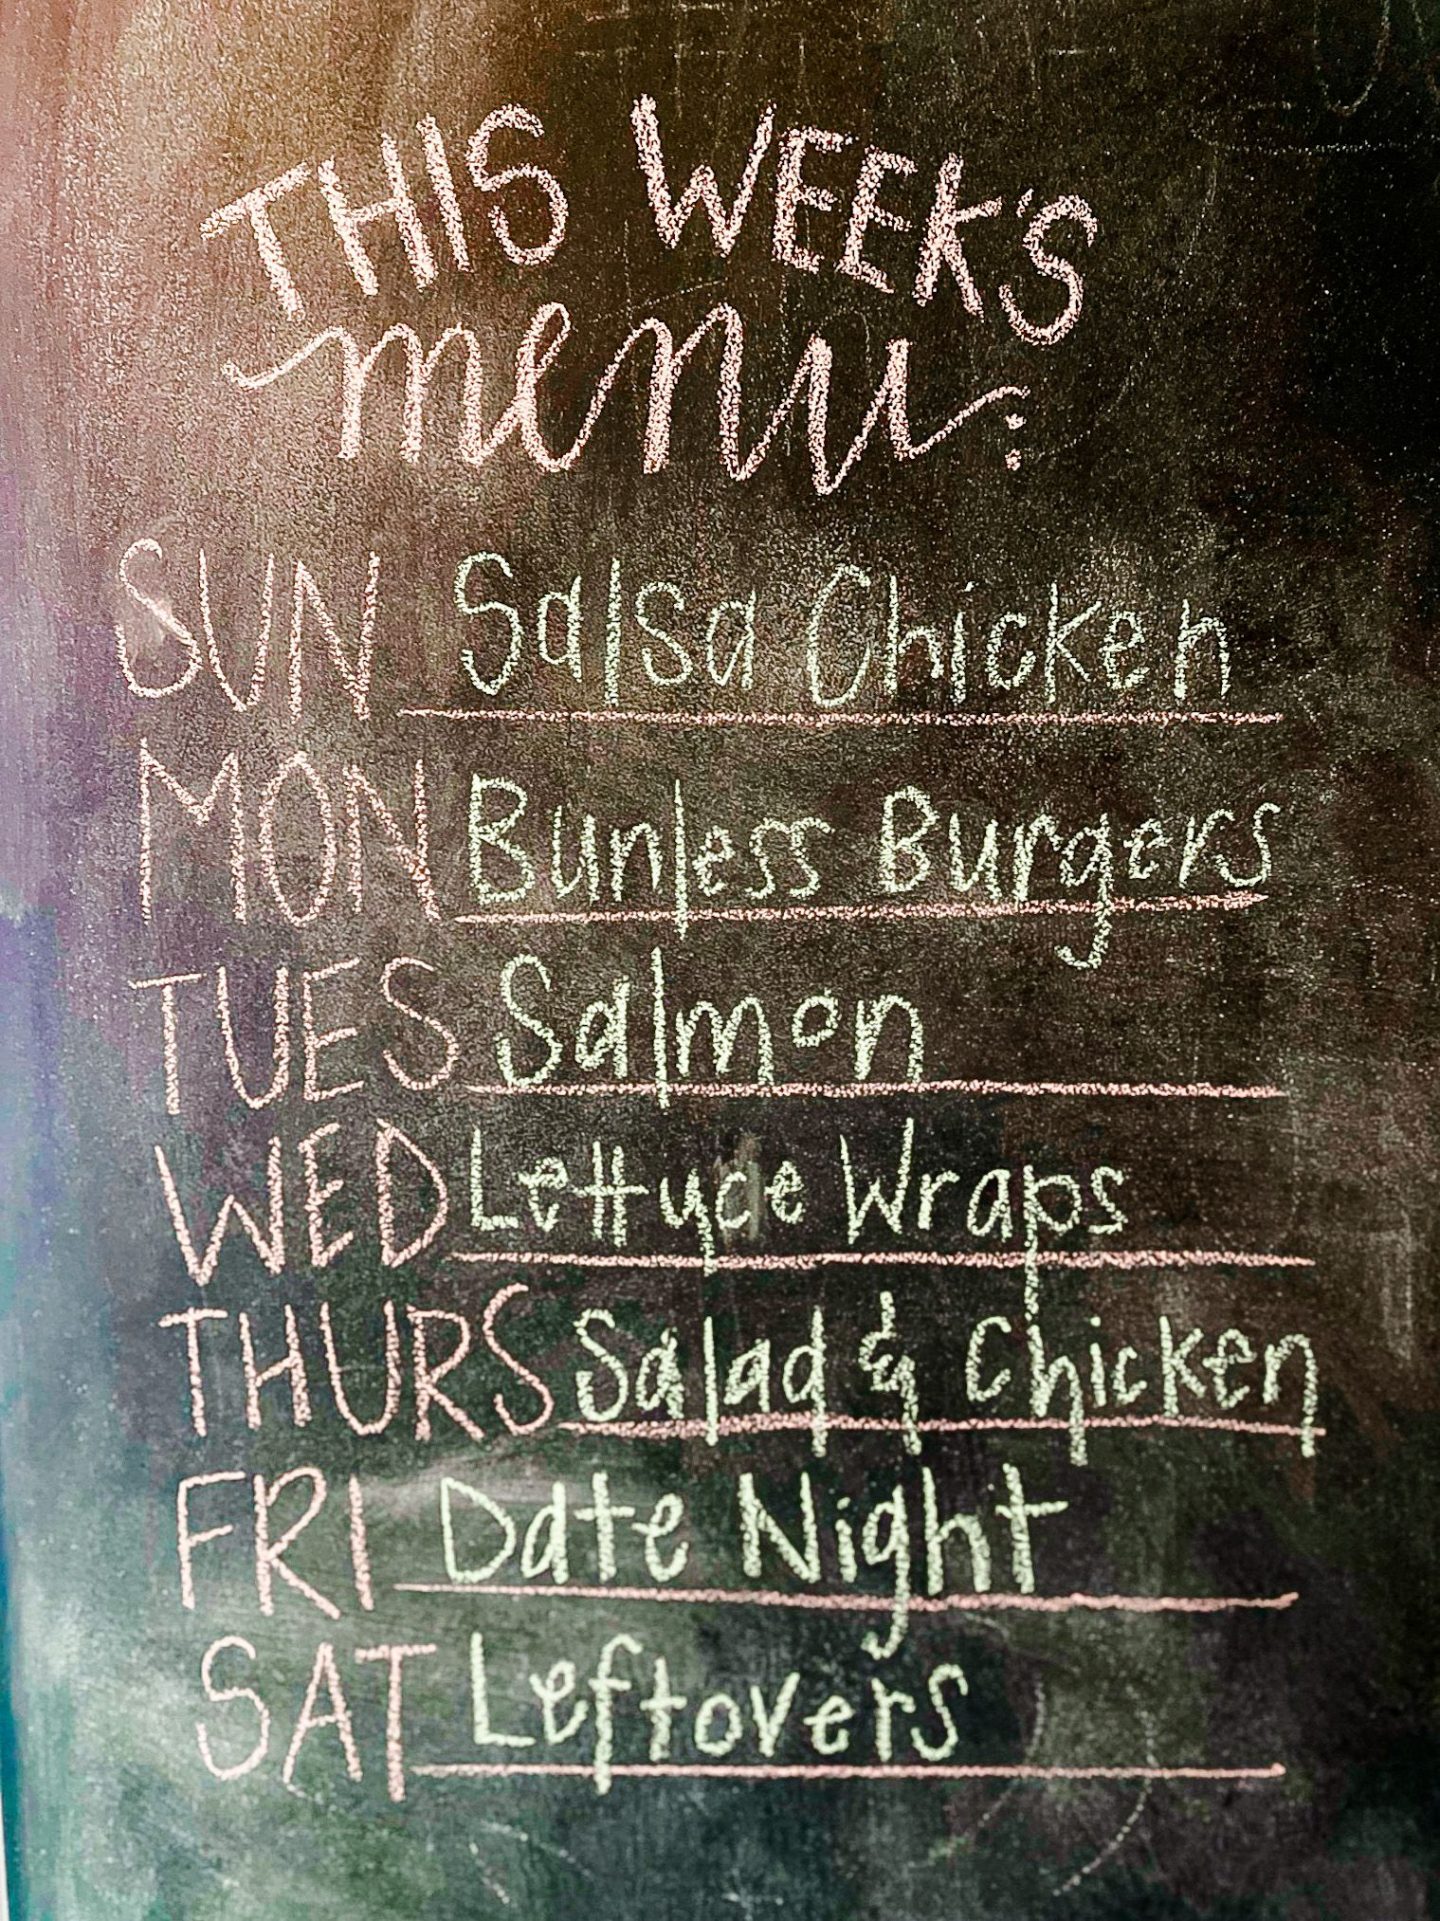 THIS WEEK'S
menu:
SUN Salsa Chicken
MON Bunless Burgers
TUES Salmon
WED Lettuce Wraps
THURS Salad & Chicken
FRI Date Night
SAT Leftovers